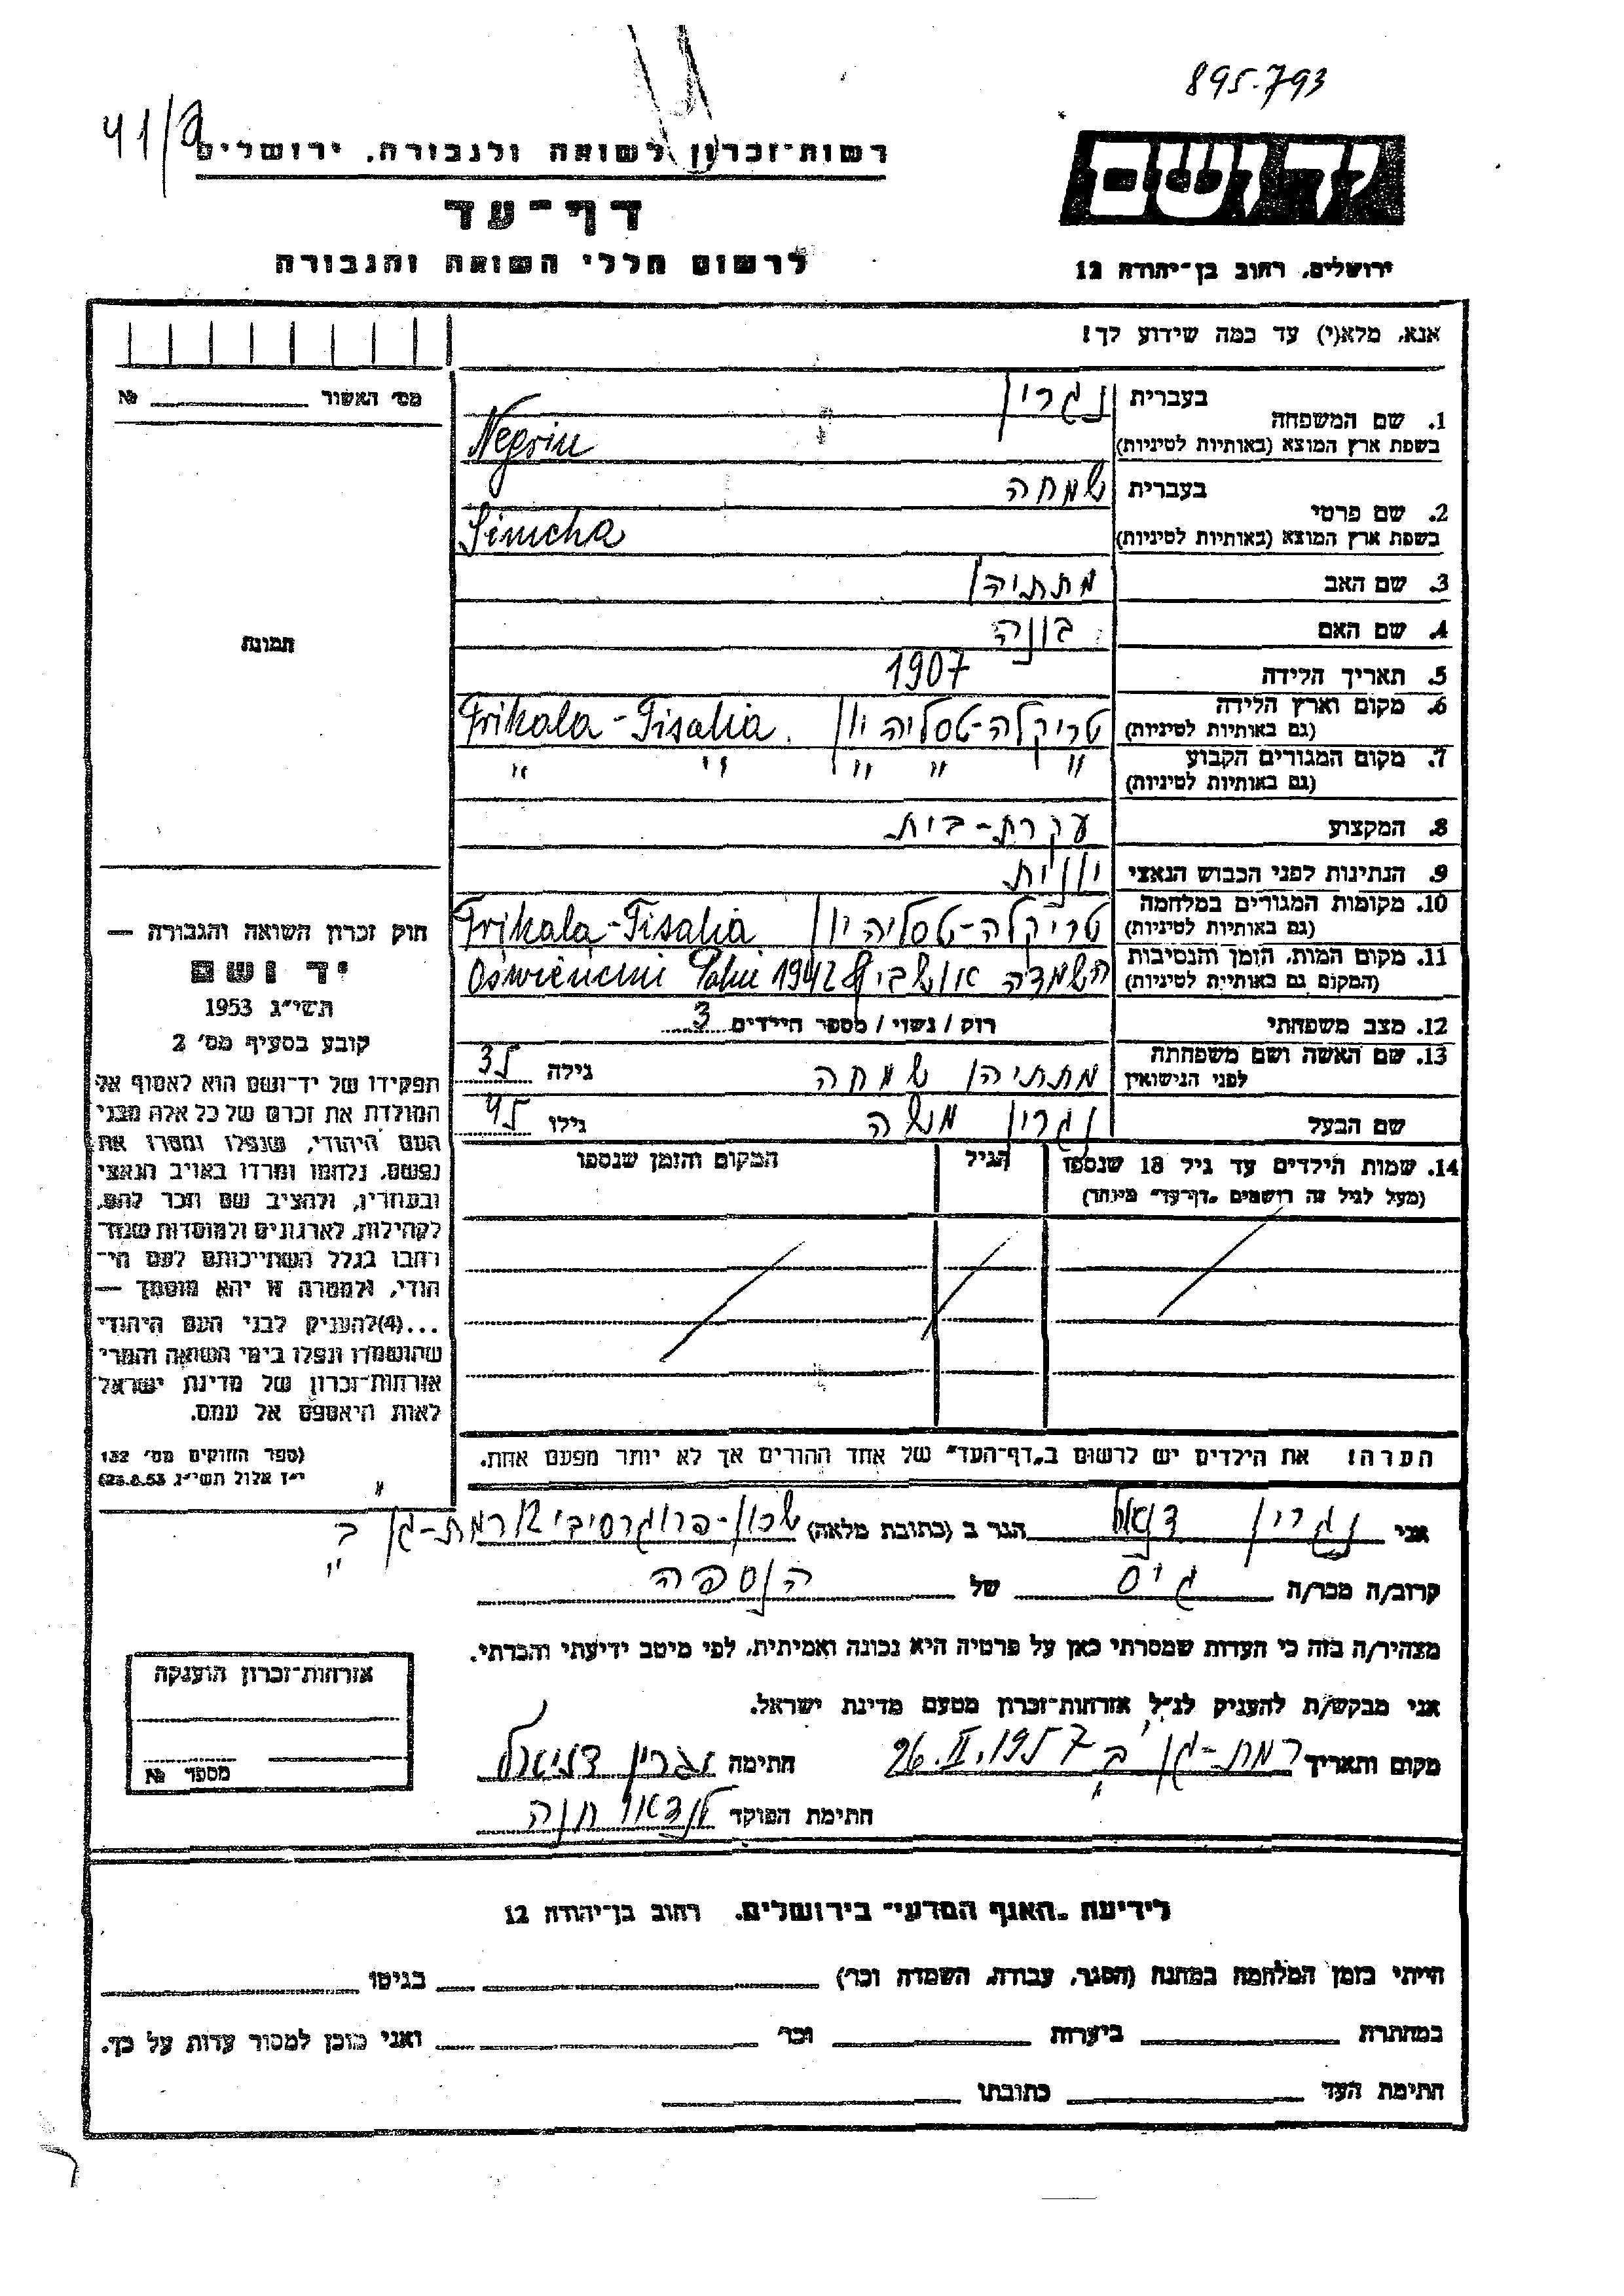 895.793
41/9
רשות־זכרון לשואה ולגבורה. ירושלים
יד ושם
דף־עד
לרשום חללי השואה והגבורה
ירושלים, רחוב בן־יהודה 12
אנא, מלא(י) עד כמה שידוע לך!
מס׳ האשור № 
1. שם המשפחה
בעברית נגרין
בשפת ארץ המוצא (באותיות לטיניות) Negrin
2. שם פרטי
בעברית שמחה
בשפת ארץ המוצא (באותיות לטיניות) Simcha
3. שם האב מתתיהו
4. שם האם בונה
5. תאריך הלידה 1907
6. מקום וארץ הלידה
(גם באותיות לטיניות) טריקלה-טסליה יון Trikala-Tisalia
7. מקום המגורים הקבוע " " " " "
(גם באותיות לטיניות)
8. המקצוע עקרת-בית
9. הנתינות לפני הכבוש הנאצי יוונית
10. מקומות המגורים במלחמה
(גם באותיות לטיניות) טריקלה-טסליה יון Trikala-Tisalia
11. מקום המות, הזמן והנסיבות
(המקום גם באותיות לטיניות) השמדה 1942
12. מצב משפחתי רוק / נשוי / מספר הילדים 3
13. שם האשה ושם משפחתה
לפני הנישואין מתתיהו שמחה גילה 35
שם הבעל נגרין מנשה גילו 45
14. שמות הילדים עד גיל 18 שנספו
(מעל לגיל זה רושמים „דף־עד״ מיוחד)
הגיל
המקום והזמן שנספו
הערה! את הילדים יש לרשום ב„דף־העד״ של אחד ההורים אך לא יותר מפעם אחת.
תמונת
חוק זכרון השואה והגבורה —
יד ושם
תשי״ג 1953
קובע בסעיף מס׳ 2
תפקידו של יד־ושם הוא לאסוף אל
המולדת את זכרם של כל אלה מבני
העם היהודי, שנפלו ומסרו את
נפשם, נלחמו ומרדו באויב הנאצי
ובעוזריו, ולהציב שם וזכר להם,
לקהילות, לארגונים ולמוסדות שנח־
רבו בגלל השתייכותם לעם הי־
הודי, ולמטרה זו יהא מוסמך —
...(4)להעניק לבני העם היהודי
שהושמדו ונפלו בימי השואה והמרי
אזרחות־זכרון של מדינת ישראל
לאות היאספם אל עמם.
(ספר החוקים מס׳ 132
י״ז אלול תשי״ג 28.8.53)
אני נגרין דניאל הגר ב (כתובת מלאה) שכון-פרוגרסיבי רמת-גן ב"
קרוב/ה מכר/ה גיס של הנספה
מצהיר/ה בזה כי העדות שמסרתי כאן על פרטיה היא נכונה ואמיתית, לפי מיטב ידיעתי והכרתי.
אני מבקש/ת להעניק לנ״ל אזרחות־זכרון מטעם מדינת ישראל.
מקום ותאריך רמת-גן ב' 26.II.1957 חתימה נגרין דניאל
חתימת הפוקד לנדאו חנה
אזרחות־זכרון הוענקה
מספר №
לידיעת „האגף המדעי״ בירושלים. רחוב בן־יהודה 12
הייתי בזמן המלחמה במחנה (הסגר, עבודה, השמדה וכו׳) בגיטו
במחתרת ביערות וכו׳ ואני מוכן למסור עדות על כך.
חתימת העד כתובתו